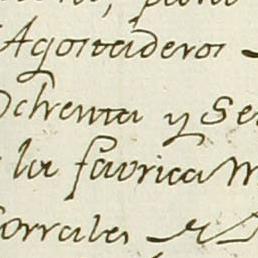 Agostaderos
Ochenta y Se
la favrica M
Corrales